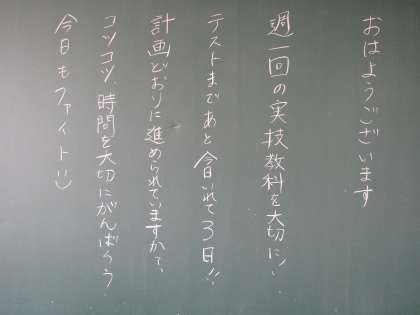 おはようございます
週一回の実技教科を大切に!
テストまであと今日いれて3日!!
計画どおりに進められていますか?
コツコツ、時間を大切にがんばろう
今日もファイト!!